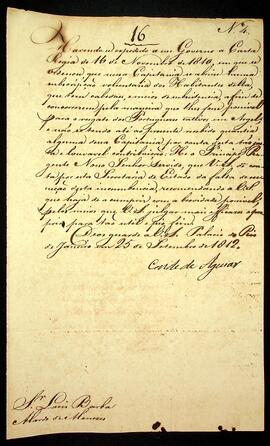 16
N.º 4.
Havendo-se expedido a esse Governo a Carta
Regia de 16 de Novembro de 1810, em que se
nessa Capitania se abrisse huma
subscripção voluntaria dos Habitantes della,
que
concorrerem pela maneira que lhes fosse possivel
para o resgate dos Portuguezes cativos em Argel,
e não se tendo até ao presente quantia
alguma dessa Capitania por conta
e louvavel He o Principe Re-
gente Nosso Senhor Servido, que V. S.ª
por esta Secretaria de Estado da falta de
desta incumbencia, recommendando a V. S.ª
que haja de a cumprir com a brevidade possivel,
pelos meios que V. S.ª julgar mais efficazes e pro-
prios para tão util e pio fim.
Deos guarde a V. S.ª Palacio do Rio
de Janeiro em 25 de Setembro de 1812.
Conde de Aguiar
S.r Luis Barba
Alardo de Menezes